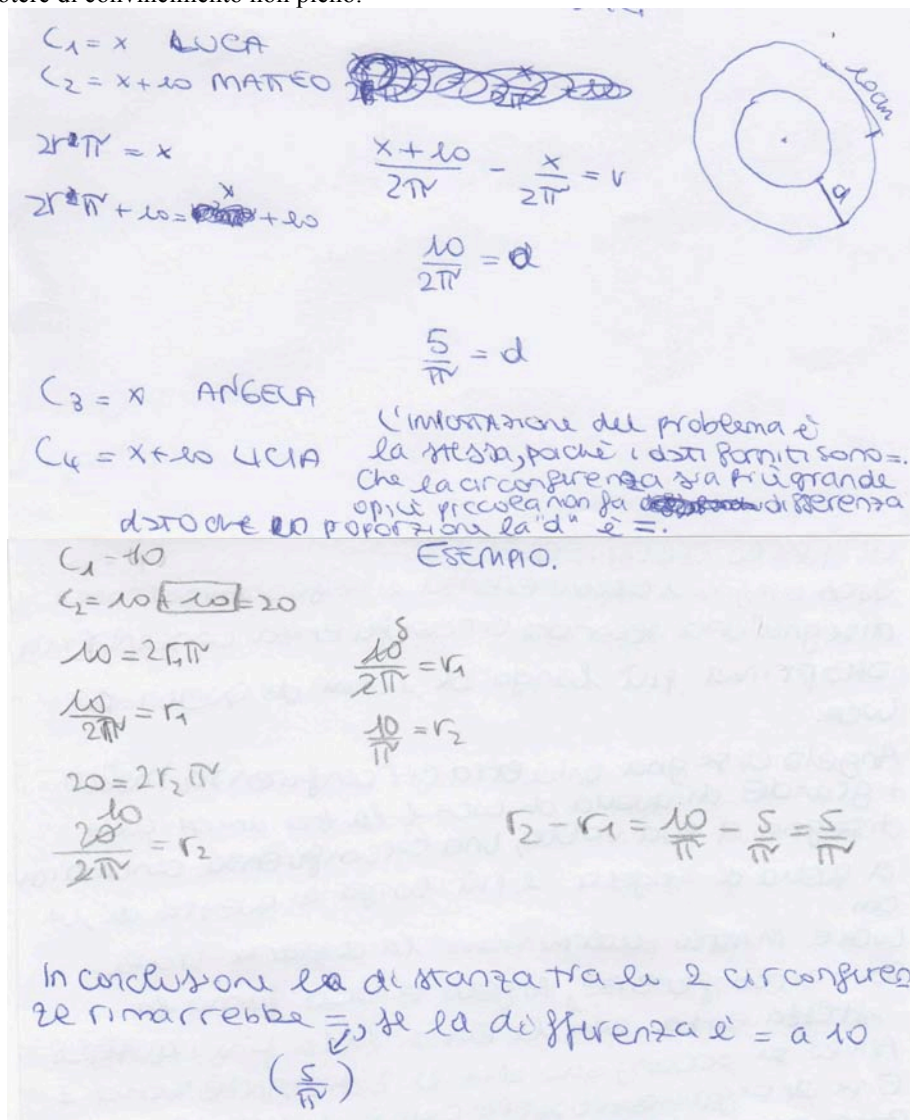 potere di convincimento non pieno.
C₁ = x LUCA
C₂ = x+10 MATTEO
2rπ = x
2rπ + 10 = x + 10
(x+10)/2π - x/2π = r
10/2π = d
5/π = d
10cm
d
C₃ = x ANGELA
C₄ = x+10 LICIA
L'impostazione del problema è
la stessa, poiché i dati forniti sono =.
Che la circonferenza sia più grande
o più piccola non fa differenza
dato che in poporzione la "d" è =.
ESEMPIO.
C₁ = 10
C₂ = 10 + 10 = 20
10 = 2r₁π
10/2π = r₁
20 = 2r₂π
20/2π = r₂
10
10/2π = r₁
5
10/π = r₂
r₂ - r₁ = 10/π - 5/π = 5/π
In conclusione la distanza tra le 2 circonferen
ze rimarrebbe =, se la differenza è = a 10
(5/π)